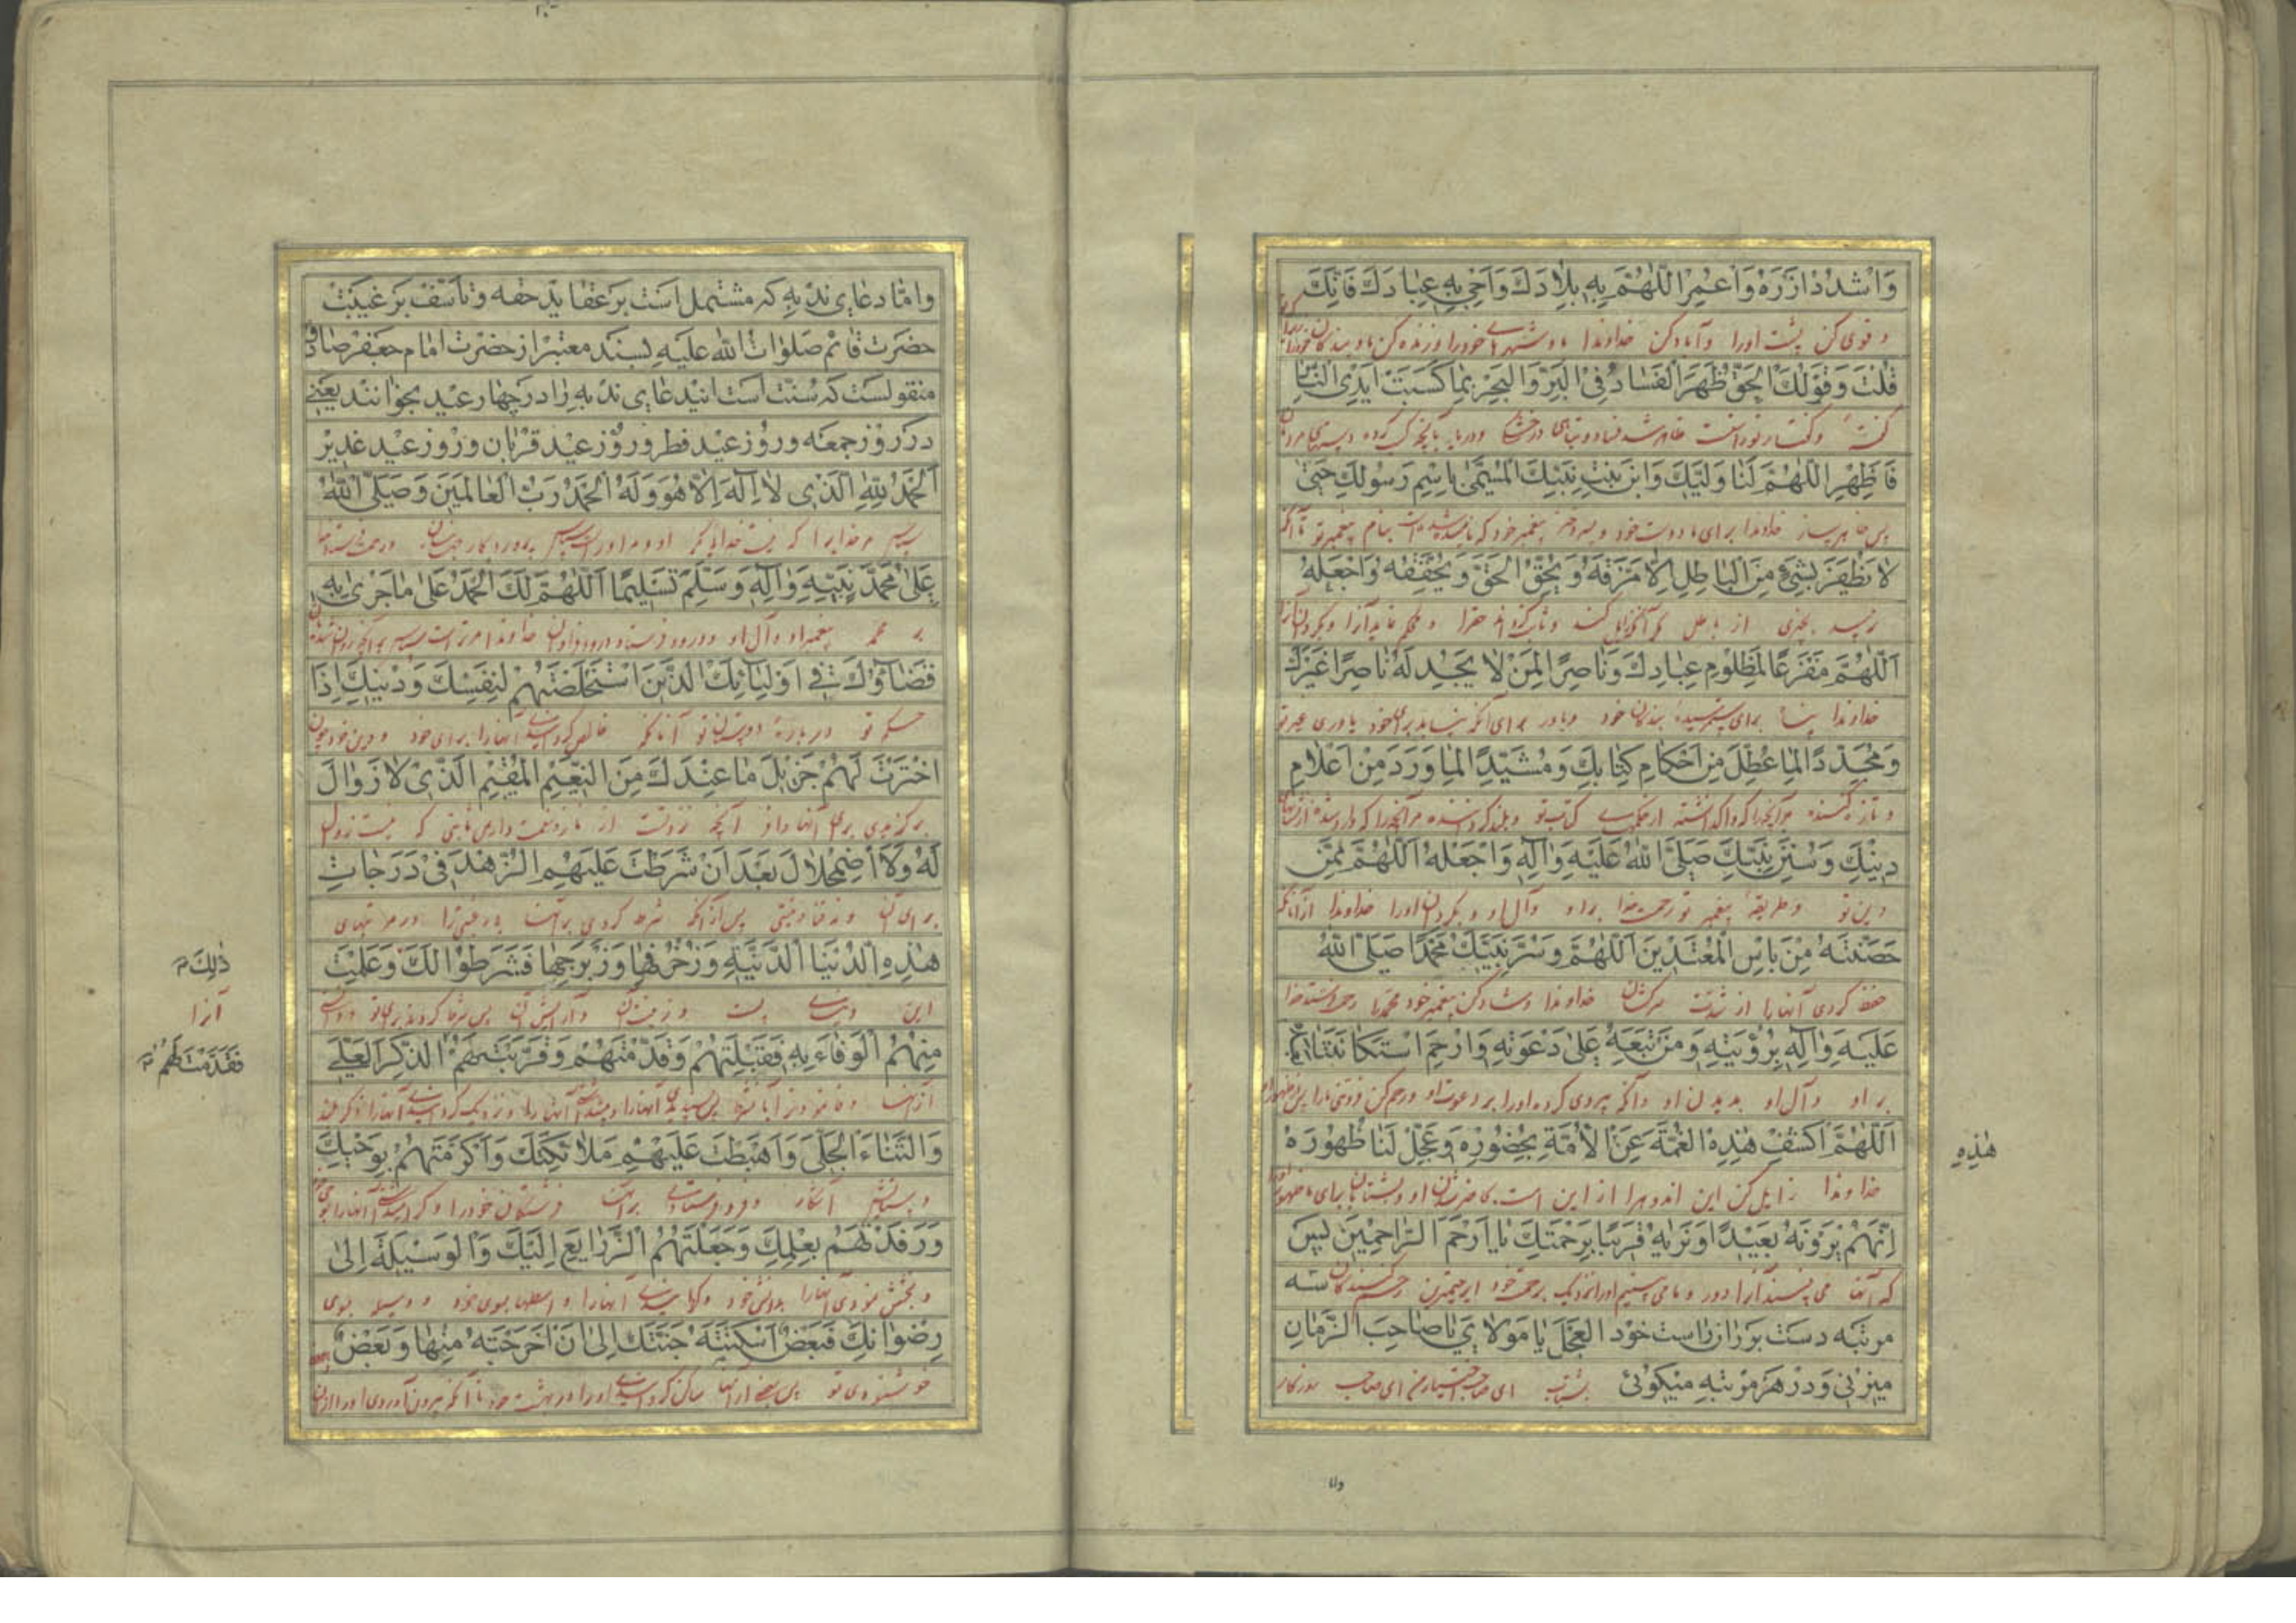 وَاشْدُدْ اَزْرَهُ وَاعْمُرِ اللّٰهُمَّ بِهِ بِلَادَكَ وَاَحْيِ بِهِ عِبَادَكَ فَاِنَّكَ
و قوی کن پشت اورا و آباد کن خداوندا باو شهرهای خودرا و زنده کن باو بندکان خودرا
قُلْتَ وَقَوْلُكَ الْحَقُّ ظَهَرَ الْفَسَادُ فِی الْبَرِّ وَالْبَحْرِ بِمَا كَسَبَتْ اَیْدِی النَّاسِ
گفتهٔ و گفتار تو راست ظاهر شد فساد و تباهی در خشکی و دریا بآنچه کسب کرده دستهای مردمان
فَاَظْهِرِ اللّٰهُمَّ لَنَا وَلِیَّكَ وَابْنَ بِنْتِ نَبِیِّكَ الْمُسَمّٰی بِاسْمِ رَسُولِكَ حَتّٰی
پس ظاهر ساز خداوندا برای ما دوست خود و پسر دختر پیغمبر خود که نامیده شده است بنام پیغمبر تو تا آنکه
لَا یَظْفَرَ بِشَیْءٍ مِنَ الْبَاطِلِ اِلَّا مَزَّقَهُ وَیُحِقَّ الْحَقَّ وَیُحَقِّقَهُ وَاجْعَلْهُ
نرسد بچیزی از باطل مگر آنکه زایل کند و ثابت گرداند حقرا و محکم نماید آنرا و بگردان آنرا
اَللّٰهُمَّ مَفْزَعًا لِمَظْلُومِ عِبَادِكَ وَنَاصِرًا لِمَنْ لَا یَجِدُ لَهُ نَاصِرًا غَیْرَكَ
خداوندا پناه برای ستم رسیدهٔ بندگان خود و یاور برای آنکه نیابد برای خود یاوری غیر تو
وَمُجَدِّدًا لِمَا عُطِّلَ مِنْ اَحْكَامِ كِتَابِكَ وَمُشَیِّدًا لِمَا وَرَدَ مِنْ اَعْلَامِ
و تازه کننده مر آنچه را که واگذاشته از حکمهای کتاب تو و بلند کرداننده مر آنچه را که وارد شده از نشانهای
دِینِكَ وَسُنَنِ نَبِیِّكَ صَلَّی اللّٰهُ عَلَیْهِ وَاٰلِهِ وَاجْعَلْهُ اَللّٰهُمَّ مِمَّنْ
دین تو و طریقهٔ پیغمبر تو رحمت خدا بر او و آل او و بگردان اورا خداوندا از آنانکه
حَصَّنْتَهُ مِنْ بَاْسِ الْمُعْتَدِینَ اَللّٰهُمَّ وَسُرَّ نَبِیَّكَ مُحَمَّدًا صَلَّی اللّٰهُ
حفظ کردی آنهارا از شدت سرکشان خداوندا و شاد کن پیغمبر خود محمد را رحمت فرستد خدا
عَلَیْهِ وَاٰلِهِ بِرُؤْیَتِهِ وَمَنْ تَبِعَهُ عَلٰی دَعْوَتِهِ وَارْحَمِ اسْتِكَانَتَنَا بَعْدَهُ
بر او و آل او بدیدن او و آنکه پیروی کرده اورا بر دعوت او و رحم کن فروتنی مارا پس از
اَللّٰهُمَّ اكْشِفْ هٰذِهِ الْغُمَّةَ عَنِ الْاُمَّةِ بِحُضُورِهِ وَعَجِّلْ لَنَا ظُهُورَهُ
هٰذِهِ
خداوندا زایل کن این اندوه را از این امت بحاضر شدن او و شتابان برای ما ظهور
اِنَّهُمْ یَرَوْنَهُ بَعِیدًا وَنَرٰیهُ قَرِیبًا بِرَحْمَتِكَ یَا اَرْحَمَ الرَّاحِمِینَ پس
که آنها می بینند آنرا دور و ما می بینیم اورا نزدیک برحمت خود ای رحیمترین رحم کنندکان سه
مرتبه دست بر ران راست خود الْعَجَلَ یَا مَوْلَایَ یَا صَاحِبَ الزَّمَانِ
میزنی و در هر مرتبه میکوئی بشتاب ای صاحب اختیار من ای صاحب روزگار
وامّا
وامّا دعای ندبه که مشتمل است بر عقاید حقه و تاسّف بر غیبت
حضرت قائم صلوات الله علیه بسند معتبر از حضرت امام جعفر صادق
منقولست که سنّت است اینْدعای ندبه را در چهار عید بخوانند یعنی
در روز جمعه و روز عید فطر و روز عید قربان و روز عید غدیر
اَلْحَمْدُ لِلّٰهِ الَّذِی لَا اِلٰهَ اِلَّا هُوَ وَلَهُ الْحَمْدُ رَبِّ الْعَالَمِینَ وَصَلَّی اللّٰهُ
سپاس مر خدایرا که نیست خدائی مگر او و مر اوراست سپاس پروردکار جهانیان و رحمت فرستد خدا
عَلٰی مُحَمَّدٍ نَبِیِّهِ وَاٰلِهِ وَسَلَّمَ تَسْلِیمًا اَللّٰهُمَّ لَكَ الْحَمْدُ عَلٰی مَا جَرٰی بِهِ
بر محمد پیغمبر او و آل او و درود فرستاد درود فرستادنی خداوندا مر تراست سپاس بر آنچه روان شده
قَضَاؤُكَ فِی اَوْلِیَائِكَ الَّذِینَ اسْتَخْلَصْتَهُمْ لِنَفْسِكَ وَدِینِكَ اِذَا
حکم تو در بارهٔ دوستان تو آنانکه خالص کردانیدی آنهارا برای خود و دین خود چون
اخْتَرْتَ لَهُمْ جَزِیلَ مَا عِنْدَكَ مِنَ النَّعِیمِ الْمُقِیمِ الَّذِی لَا زَوَالَ
برگزیدی برای آنها وافر آنچه نزد تست از ناز و نعمت دایمی ثابتی که نیست زوال
لَهُ وَلَا اضْمِحْلَالَ بَعْدَ اَنْ شَرَطْتَ عَلَیْهِمُ الزُّهْدَ فِی دَرَجَاتِ
برای آن و نه فنا و نیستی پس از آنکه شرط کردی بر آنها بی رغبتی را در مرتبهای
هٰذِهِ الدُّنْیَا الدَّنِیَّةِ وَزُخْرُفِهَا وَزِبْرِجِهَا فَشَرَطُوا لَكَ وَعَلِمْتَ
ذٰلِكَ
این دنیای پست و زینت آن و آرایش آن پس شرط کردند برای تو و دانستی
آنرا
مِنْهُمُ الْوَفَاءَ بِهِ فَقَبِلْتَهُمْ وَقَدَّمْتَهُمْ وَقَرَّبْتَهُمْ الذِّكْرَ الْعَلِیَّ
فَقَدَّمْتَ لَهُمُ
از آنها وفا نمودن را بآن شرط پس پسندیدی آنهارا و آنهارا و نزدیک کردانیدی آنهارا ذکر بلند
وَالثَّنَاءَ الْجَلِیَّ وَاَهْبَطْتَ عَلَیْهِمْ مَلَائِكَتَكَ وَاَكْرَمْتَهُمْ بِوَحْیِكَ
و ستایش آشکار و فرو فرستادی بر آنها فرشتکان خودرا و کرامی آنهارا بوحی
وَرَفَدْتَهُمْ بِعِلْمِكَ وَجَعَلْتَهُمُ الذَّرَایِعَ اِلَیْكَ وَالْوَسِیلَةَ اِلٰی
و بخشش نمودی آنهارا بدانش خود و کردانیدی آنهارا واسطها بسوی خود و وسیله بسوی
رِضْوَانِكَ فَبَعْضٌ اَسْكَنْتَهُ جَنَّتَكَ اِلٰی اَنْ اَخْرَجْتَهُ مِنْهَا وَبَعْضٌ
خوشنودی تو پس بعضی از آنها ساکن کردانیدی اورا در بهشت خود تا آنکه بیرون آوردی اورا از آن